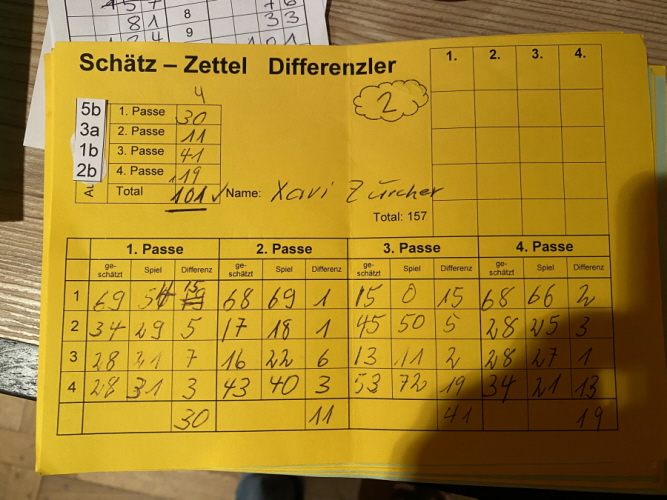 81 8 33
9 101
Schätz – Zettel Differenzler
1. 2. 3. 4.
4
2
5b 1. Passe 30
3a 2. Passe 11
1b 3. Passe 41
2b 4. Passe 19
Total 101 ✓ Name: Xavi Zürcher
Total: 157
1. Passe 2. Passe 3. Passe 4. Passe
ge-schätzt Spiel Differenz ge-schätzt Spiel Differenz ge-schätzt Spiel Differenz ge-schätzt Spiel Differenz
1 69 54 15 68 69 1 15 0 15 68 66 2
2 34 29 5 17 18 1 45 50 5 28 25 3
3 28 21 7 16 22 6 13 11 2 28 27 1
4 28 31 3 43 40 3 53 72 19 34 21 13
30 11 41 19